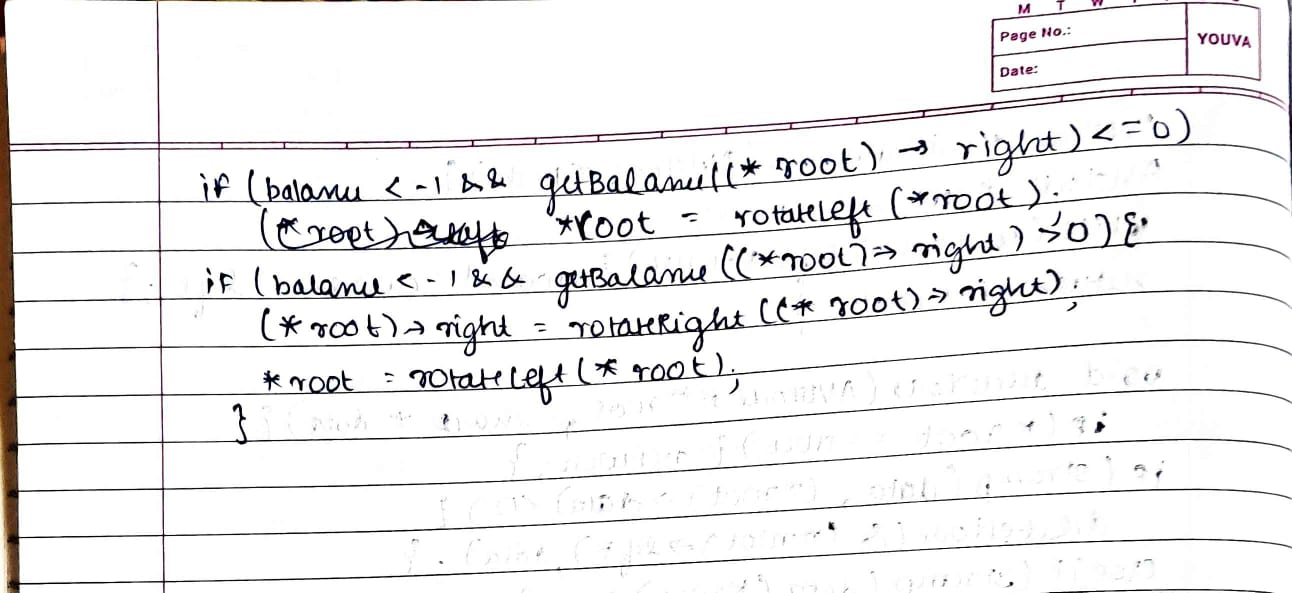 M T W
Page No.:
YOUVA
Date:
if (balance < -1 && getBalance((* root) → right) <= 0)
*root = rotateLeft (*root).
if (balance < -1 && getBalance ((*root) → right) > 0) {
(* root) → right = rotateRight ((* root) → right);
* root = rotateLeft (* root);
}